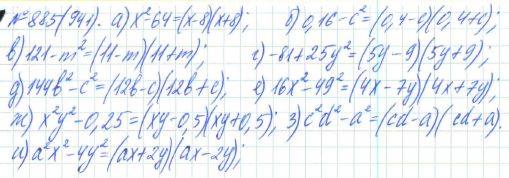 №885(941). а) x²-64=(x-8)(x+8); б) 0,16-c²=(0,4-c)(0,4+c);
в) 121-m²=(11-m)(11+m); г) -81+25y²=(5y-9)(5y+9);
д) 144b²-c²=(12b-c)(12b+c); е) 16x²-49²=(4x-7y)(4x+7y);
ж) x²y²-0,25=(xy-0,5)(xy+0,5); з) c²d²-a²=(cd-a)(cd+a).
и) a²x²-4y²=(ax+2y)(ax-2y);